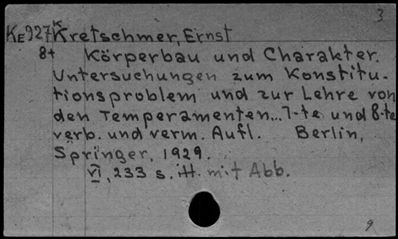 3
KE927K Kretschmer, Ernst
8+ Körperbau und Charakter.
Untersuchungen zum Konstitu-
tionsproblem und zur Lehre von
den Temperamenten... 7-te und 8-te
verb. und verm. Aufl. Berlin,
Springer, 1929.
VI, 233 s. ill. mit Abb.
9